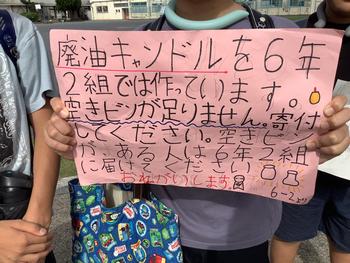 廃油キャンドルを6年
2組では作っています。
空きビンが足りません。寄付
してください。空きビン
がある人は6年2組
に届けてください
おねがいします。
6-2より